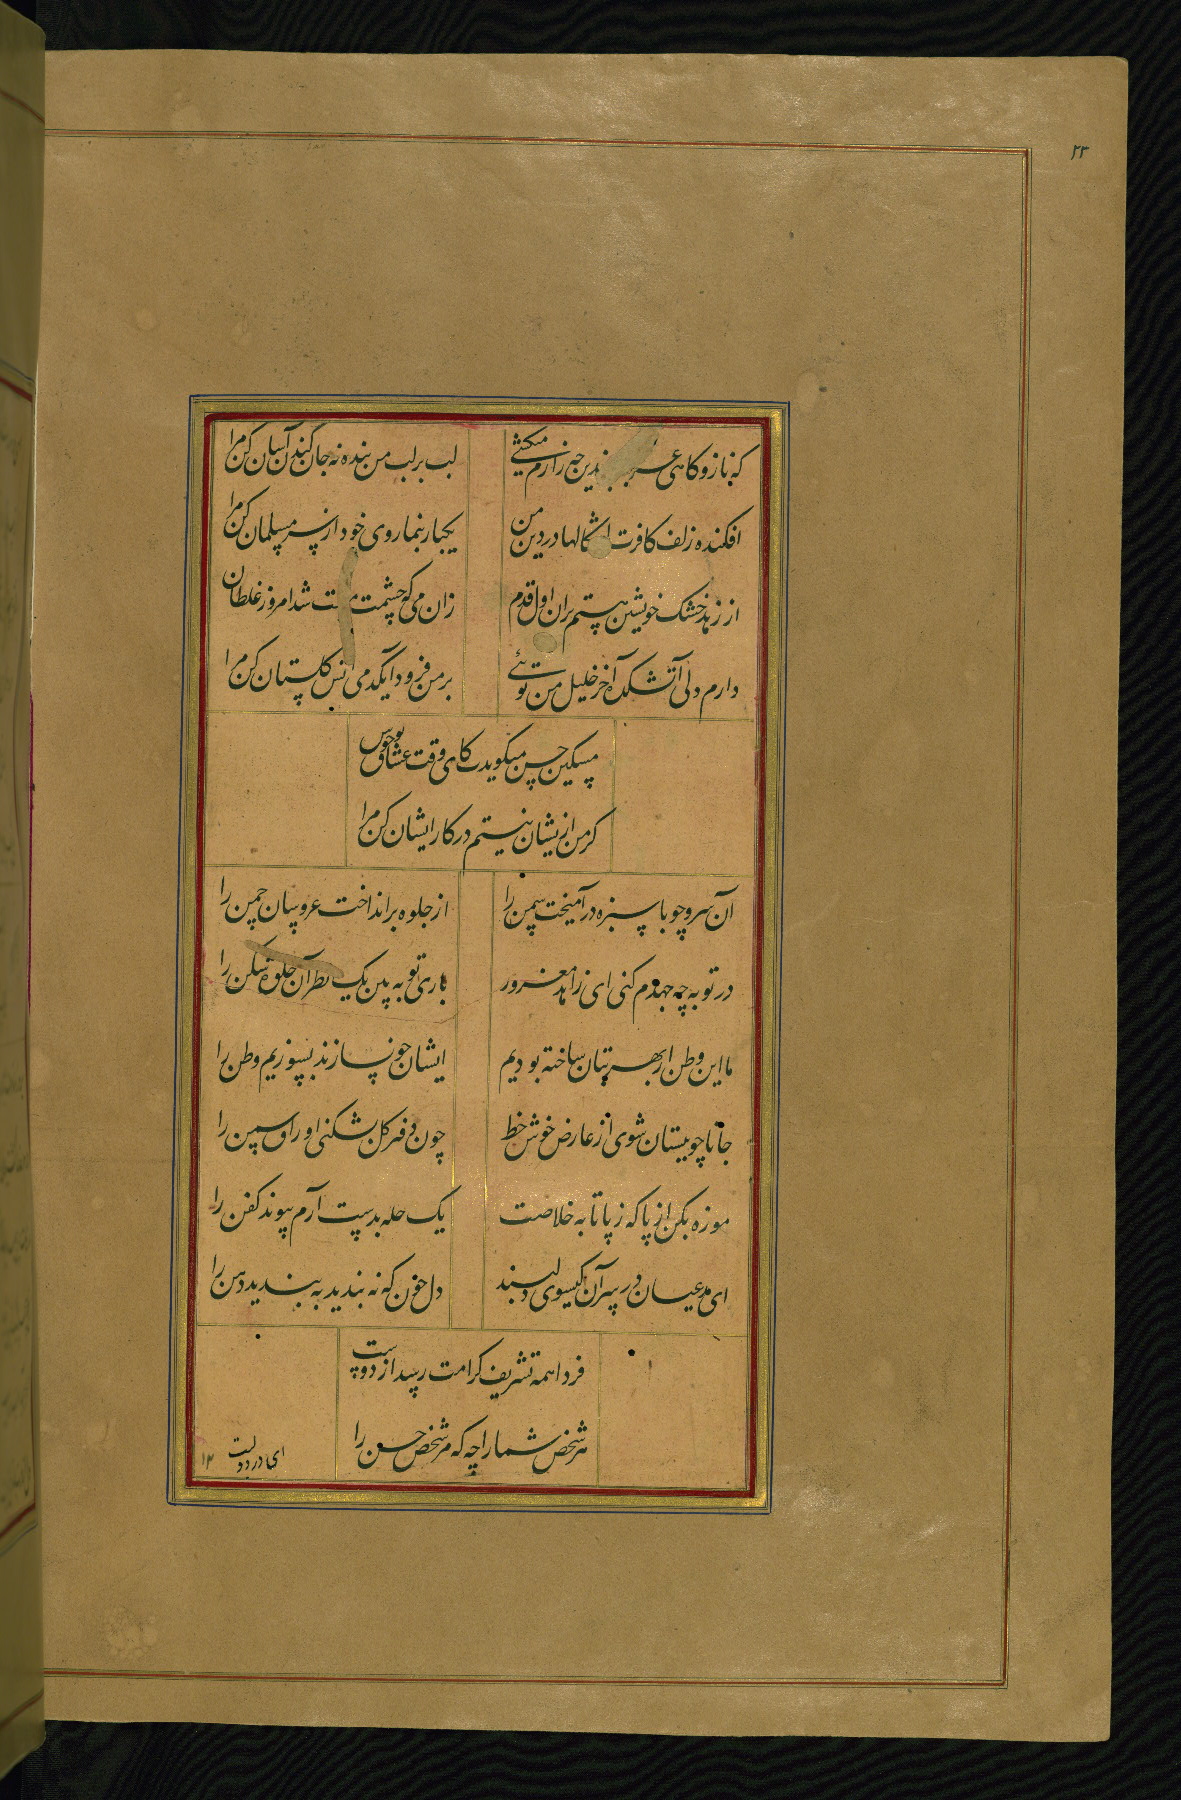 ۲۳
که ناز و کاهی عشوه چندین چه زارم میکشی
لب بر لب من بنده نه جان کندن آسان کن مرا
افکنده زلف کافرت اشکالها در دین من
یکبار بنما روی خود از سر مسلمان کن مرا
از زهد خشک خویشتن هستم بران اول قدم
زان می که چشمت مست شد امروز غلطان
دارم دلی آتشکده آخر خلیل من توئی
بر من فرود آ یکدمی انس کلستان کن مرا
مسکین حسن میکوید کای وقت عشاق بو خوش
کر من ازیشان نیستم در کار ایشان کن مرا
آن سرو چو با سبزه در آمیخت سمن را
از جلوه برانداخت عروسان چمن را
در توبه چه جهدم کنی ای زاهد مغرور
باری تو به بین یک نظر آن جلوه شکن را
ما این وطن از بهر بتان ساخته بودیم
ایشان چو نسازند بسوزیم وطن را
جانا چو بستان شوی از عارض خوش خط
چون دفتر کل بشکنی اوراق سمن را
موزه بکن از پا که ز پاتابه خلاصت
یک حله بدست آرم پیوند کفن را
ای مدعیان در سر آن کیسوی دلبند
دل خون که نه بندید به بندید دهن را
فردا همه تشریف کرامت رسد از دوست
هر شخص شما را چه که مر شخص حسن را
ای درد دلت
۱۲